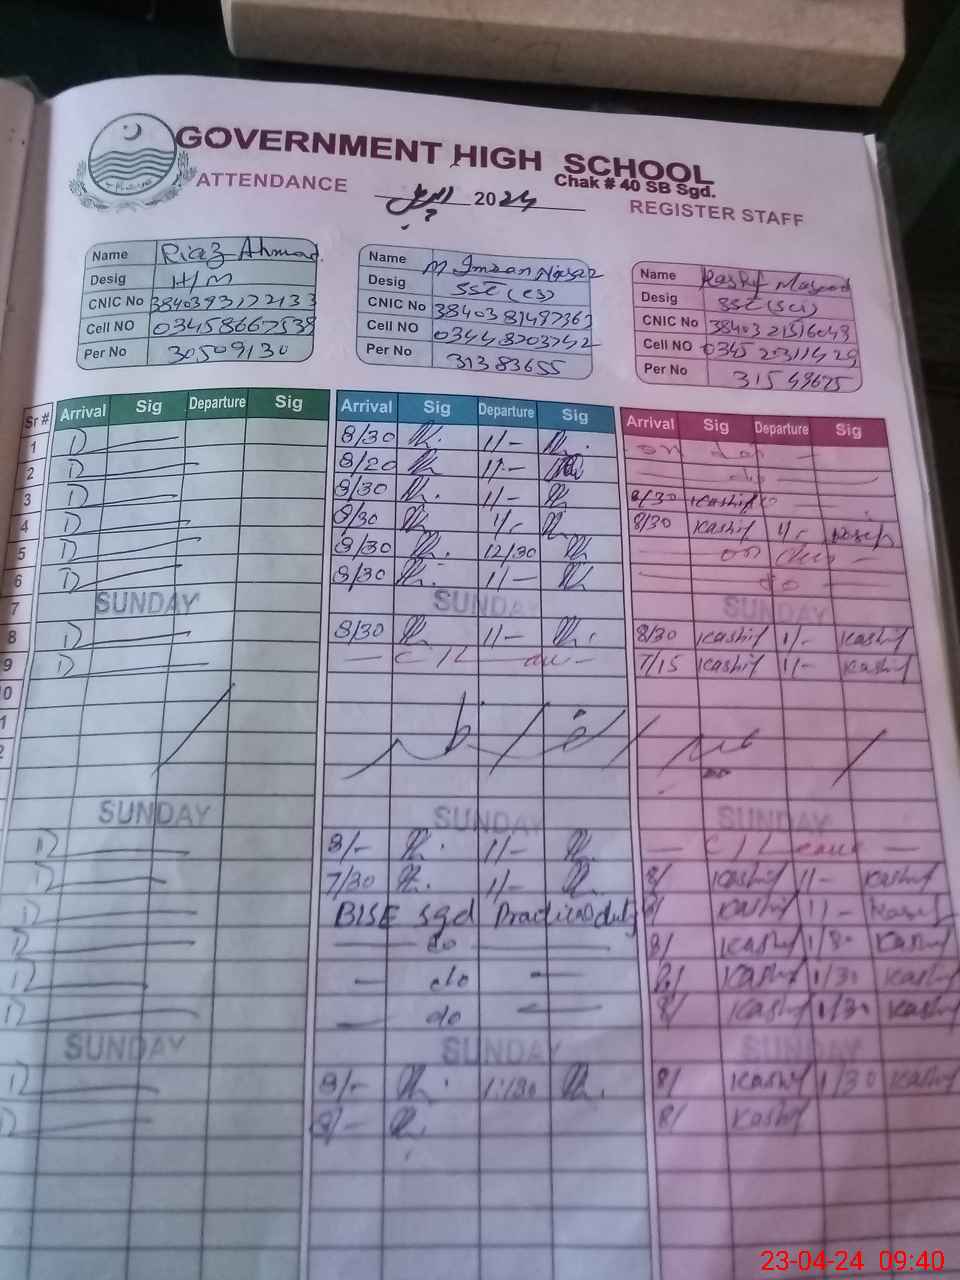 GOVERNMENT HIGH SCHOOL
Chak # 40 SB Sgd.
ATTENDANCE 2024 REGISTER STAFF
Name Riaz Ahmad.
Desig H/M
CNIC No 3840393172133
Cell NO 03458667539
Per No 30509130
Name M Imran Nasar
Desig SSE (cs)
CNIC No 3840381497363
Cell NO 03448703742
Per No 31383655
Name Kashif Masood
Desig SSE (Sci)
CNIC No 3840321516043
Cell NO 0345
Per No 31549675
Sr # Arrival Sig Departure Sig Arrival Sig Departure Sig Arrival Sig Departure Sig
1 D 8/30 1/-
2 D 8/20 1/- do
3 D 8/30 1/- 8/30 Kashif
4 D 8/30 8/30 Kashif
5 D 8/30 12/30 on
6 D 8/30 1/- do
7 SUNDAY SUNDAY SUNDAY
8 D 8/30 1/- 8/30 Kashif 1/- Kashif
9 D C/L 7/15 Kashif 1/- Kashif
0
1
2
SUNDAY SUNDAY SUNDAY
D 8/- 1/- C/L
D 7/30 1/- 8/ Kashif 1/- Kashif
D BISE Sgd Practical duty 8/ Kashif 1/-
D do 8/ Kashif Kashif
D do 8/ Kashif 1/30 Kashif
D do 8/ Kashif 1/30 Kashif
SUNDAY SUNDAY SUNDAY
D 8/- 1/30 8/ Kashif 1/30 Kashif
D 8/- 8/ Kashif
23-04-24 09:40